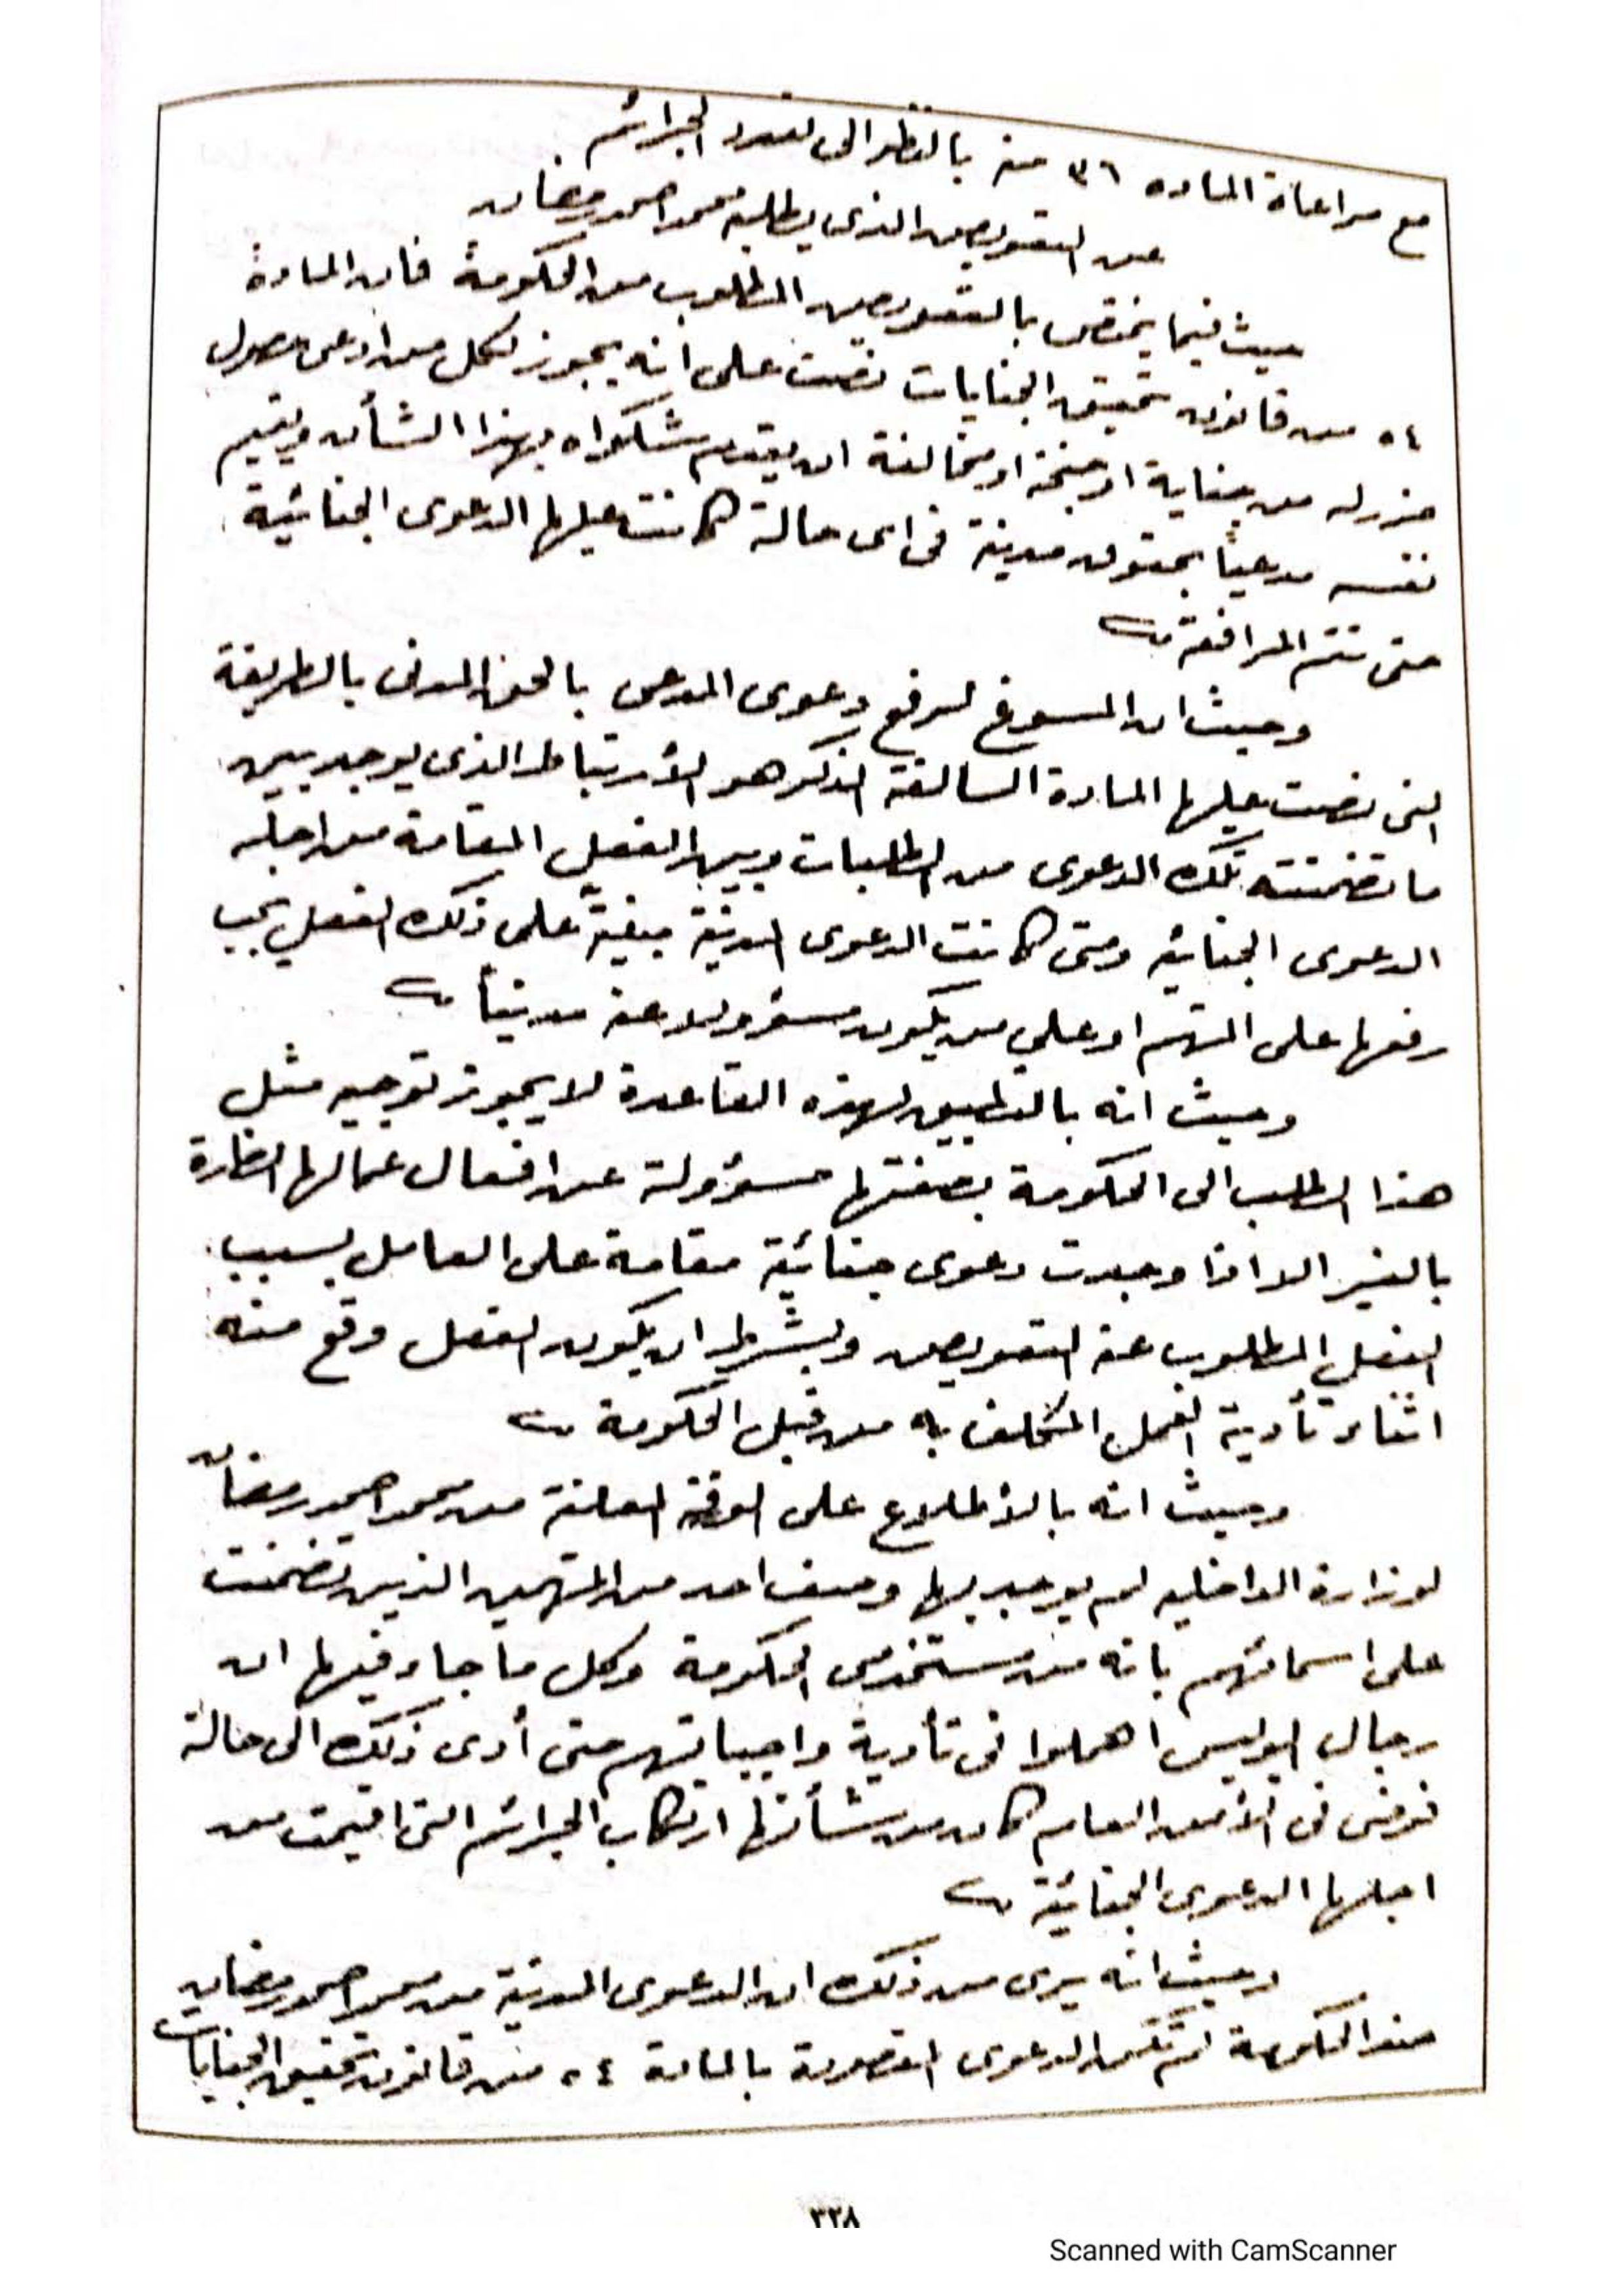 مع مراعاة الماده ٣٦ منه بالنظر الى تعدد الجرائم .
عن التعويض الذى يطلبه محمد احمد رمضان
حيث فيما يختص بالتعويض المطلوب من الحكومة فان المادة
٥٤ من قانون تحقيق الجنايات نصت على انه يجوز لكل من ادعى حصول
ضرر له من جناية او جنحة او مخالفة ان يقدم شكواه بهذا الشأن ويقيم
نفسه مدعياً بحقوق مدينة فى اى حالة كانت عليها الدعوى الجنائية
حتى تتم المرافعة
وحيث ان المسوغ لرفع دعوى المدعى بالحق المدنى بالطريقة
التى نصت عليها المادة السالفة الذكر هو الأرتباط الذى يوجد بين
ما تضمنته تلك الدعوى من الطلبات وبين الفعل المقامة من اجله
الدعوى الجنائيه ومتى كانت الدعوى المدنية مبنية على ذلك الفعل يجب
رفعها على المتهم او على من يكون مسؤولا عنه مدنياً
وحيث انه بالتطبيق لهذه القاعدة لا يجوز توجيه مثل
هذا الطلب الى الحكومة بصفتها مسؤولة عن افعال عمالها الضارة
بالغير الا اذا وجدت دعوى جنائية مقامة على العامل بسبب
الفعل المطلوب عنه التعويض وبشرط ان يكون الفعل وقع منه
اثناء تأدية العمل المكلف به من قبل الحكومة
وحيث انه بالأطلاع على الورقة المعلنة من محمد احمد رمضان
لوزارة الداخليه لم يوجد بها وصف احد من المتهمين الذين تضمنت
على اسمائهم بانه من مستخدمى الحكومة وكل ما جاء فيها ان
رجال البوليس اهملوا فى تأدية واجباتهم حتى أدى ذلك الى حالة
فوضى فى الأمن العام كان من شأنها ارتكاب الجرائم التى اقيمت من
اجلها الدعوى الجنائية
وحيث انه يرى من ذلك ان الدعوى المدنية من محمد احمد رمضان
ضد الحكومة لم تكن الدعوى المقصودة بالمادة ٥٤ من قانون تحقيق الجنايات
٣٢٨
Scanned with CamScanner